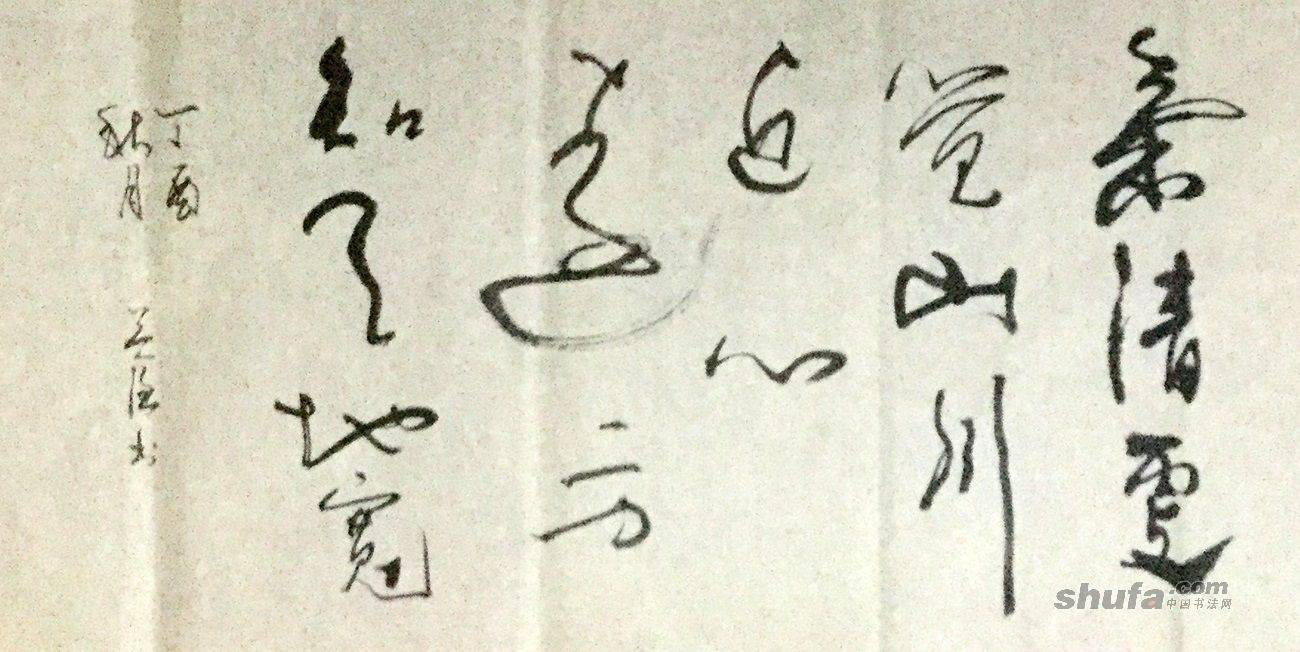 氣清更
覺山川
近心
遠方
知天地寬
丁酉
秋月 书
shufa.com
中国书法网